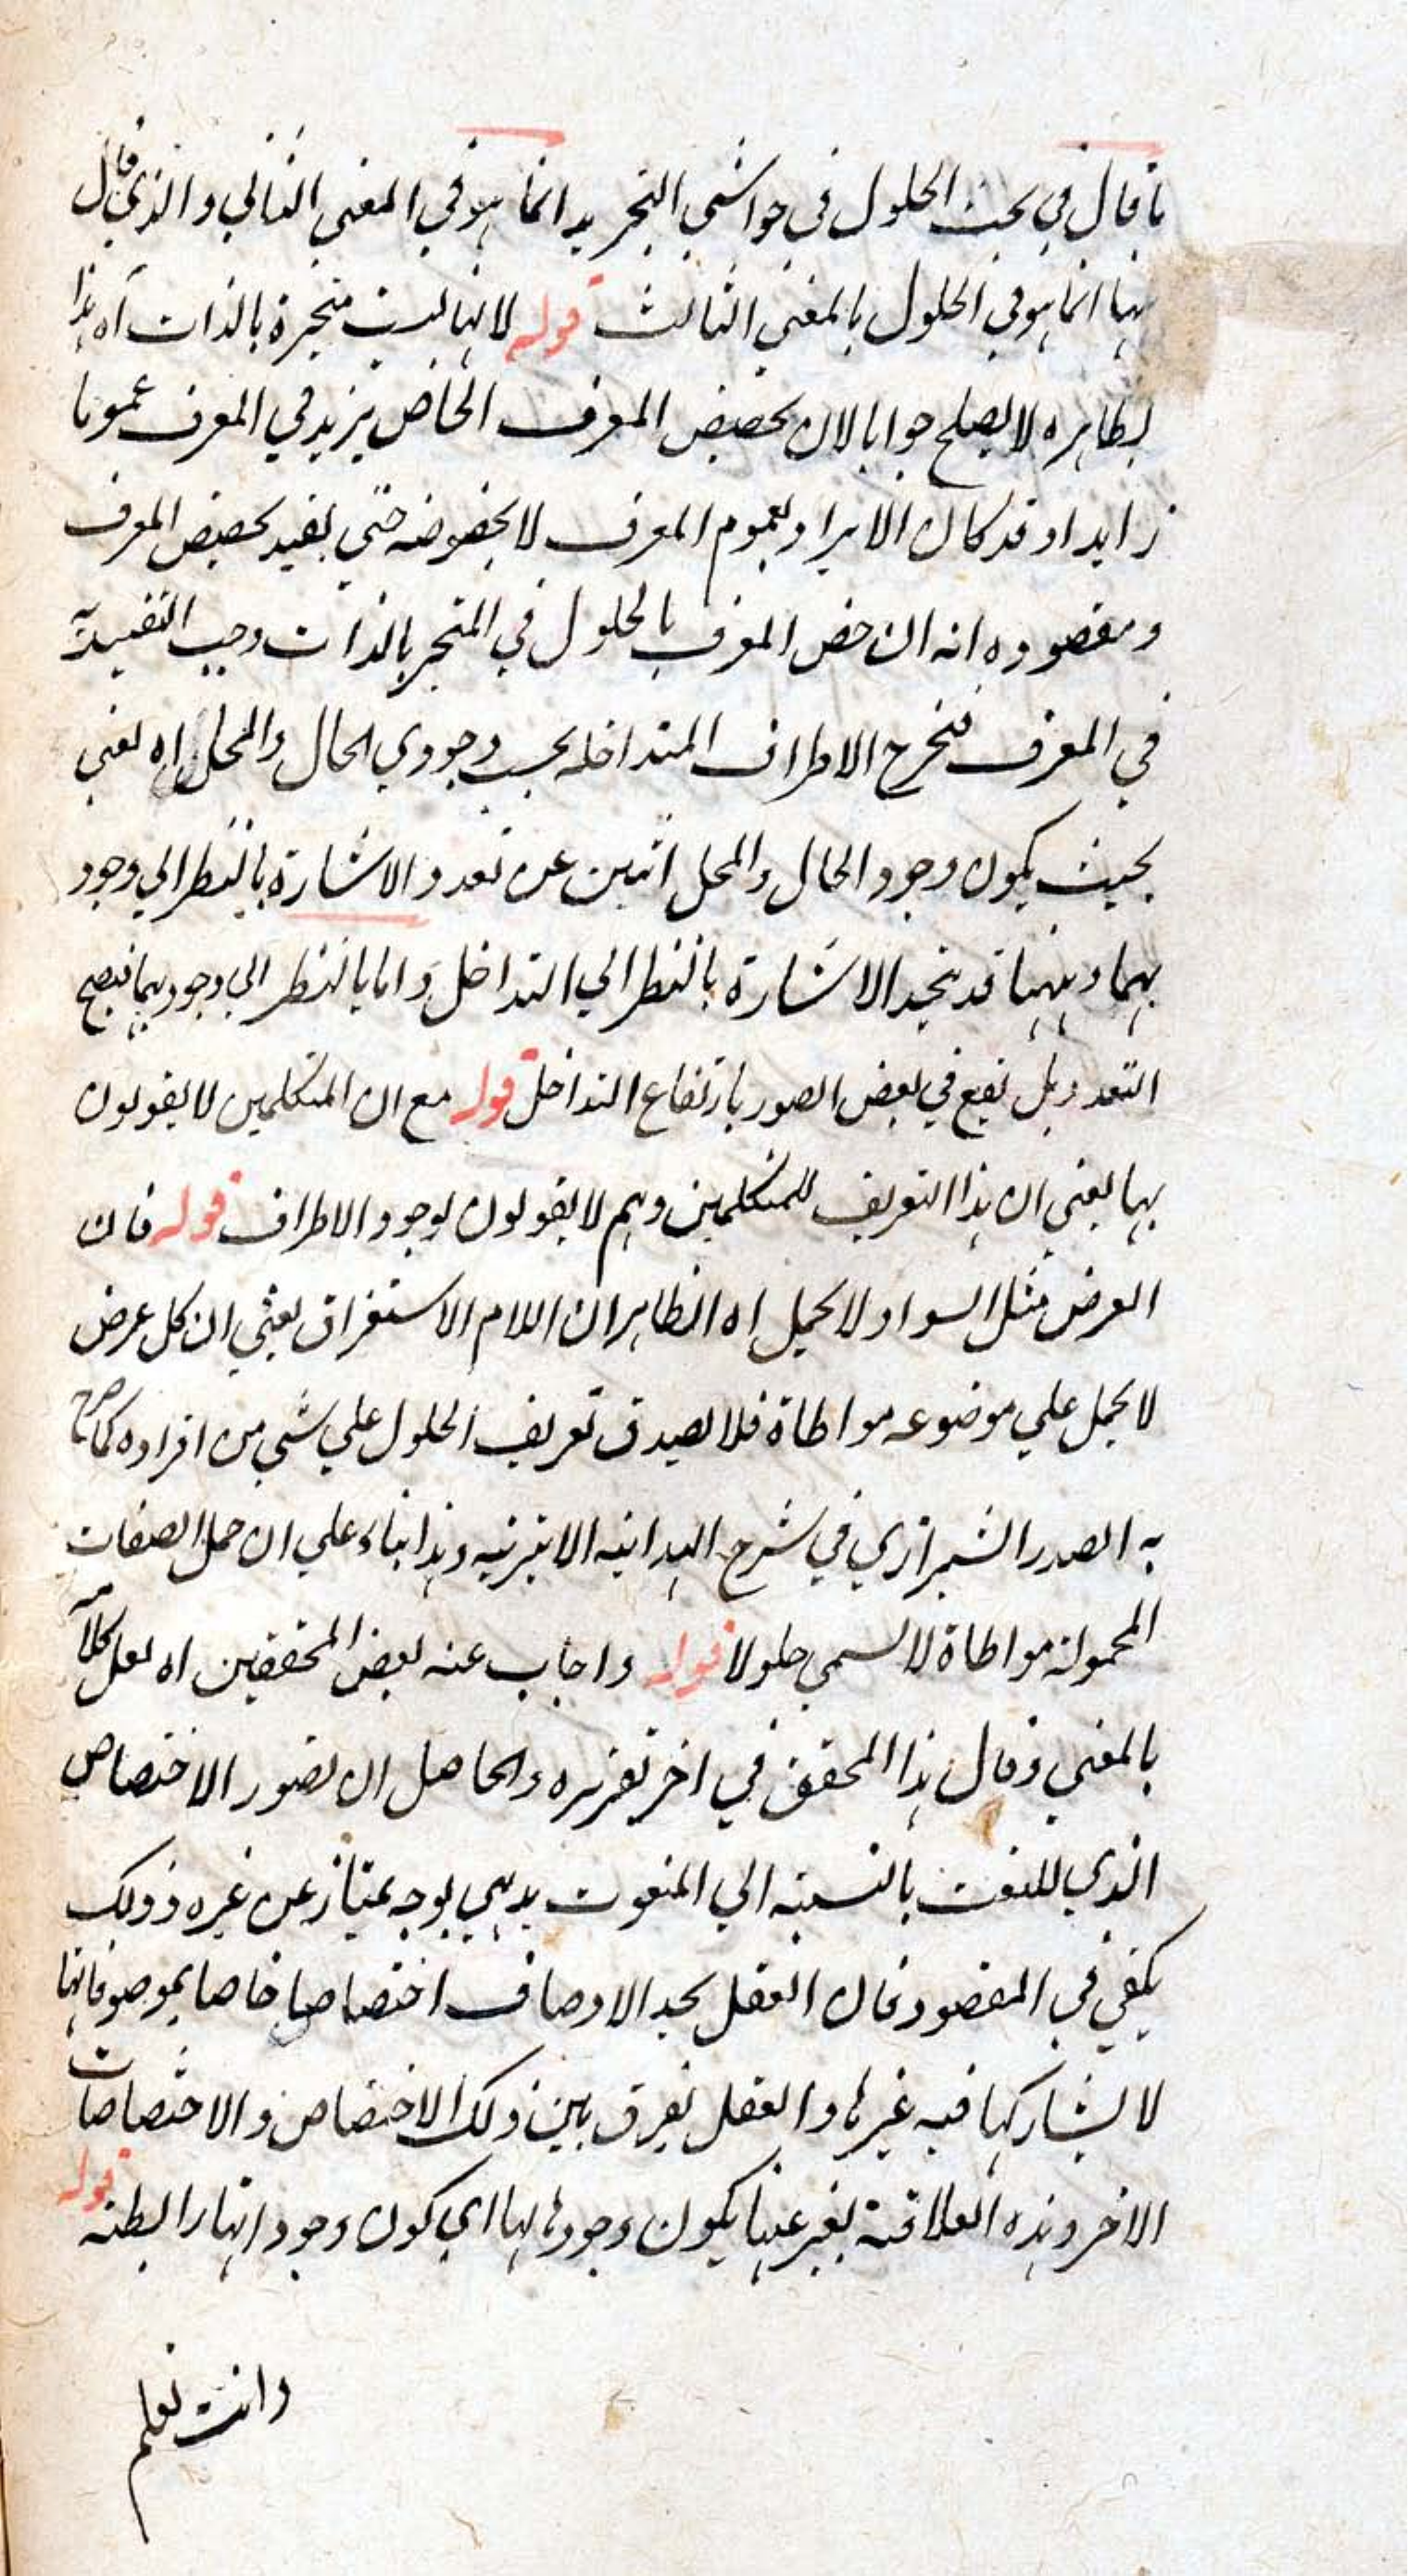 ما قال في بحث الحلول في حواشي التجريد انما هو في المعني الثاني والذي قال
ههنا انما هو في الحلول بالمعني الثالث قوله لانها ليست متحيزة بالذات اه هذا
بظاهره لا يصلح جوابا لان تخصيص المعرف الخاص يزيد في المعرف عموما
زايدا وقد كان الايراد بعموم المعرف لا بخصوصه حتي يفيد تخصيص المعرف
ومقصوده انه ان خص المعرف بالحلول في المتحيز بالذات وجب التقييد به
في المعرف فتخرج الاطراف المتداخله بحسب وجودي الحال والمحل اه يعني
بحيث يكون وجود الحال والمحل اثنين عن تعدد الاشارة بالنظر الي وجود
يهما وههنا قد يتحد الاشارة بالنظر الي التداخل واما بالنظر الي وجوديهما فيصح
التعدد بل تقع في بعض الصور بارتفاع التداخل قوله مع ان المتكلمين لا يقولون
بها يعني ان هذا التعريف للمتكلمين وهم لا يقولون بوجود الاطراف قوله فان
العرض مثل السواد لا يحمل اه الظاهر ان اللام الاستغراق يعني ان كل عرض
لا يحمل علي موضوعه مواطاة فلا يصدق تعريف الحلول علي شي من افراده كما صرح
به الصدر الشيرازي في شرح الهداية الاثيرية وهذا بناء علي ان حمل الصفات
المحمولة مواطاة لا يسمي حلولا قوله واجاب عنه بعض المحققين اه نقل كلامه
بالمعني وقال هذا المحقق في اخر تقريره والحاصل ان تصور الاختصاص
الذي للنعت بالنسبة الي المنعوت بديهي بوجه يمتاز عن غيره وذلك
يكفي في المقصود فان العقل يجد الاوصاف اختصاصا خاصا بموصوفاتها
لا يشاركها فيه غيرها والعقل يفرق بين ذلك الاختصاص والاختصاصات
الاخر وهذه العلاقة يعبر عنها بكون وجودها لها اي كون وجودها رابطته قوله
وانت تعلم